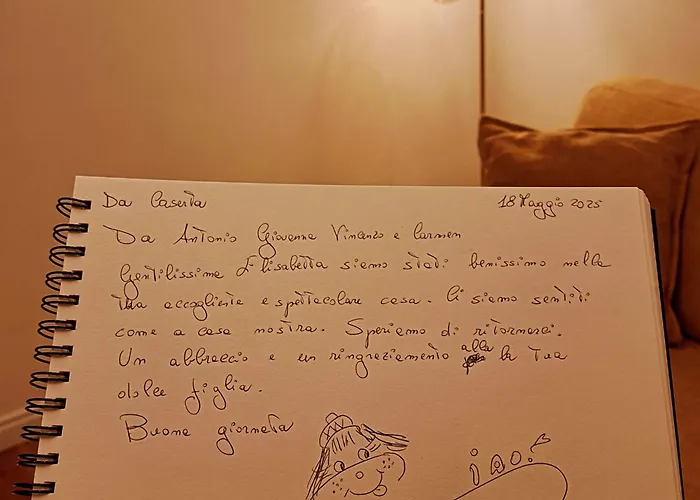 Da Caserta
18 Maggio 2025
Da Antonio Giovanna Vincenzo e Carmen
Gentilissima Elisabetta siamo stati benissimo nella
tua accogliente e spettacolare casa. Ci siamo sentiti
come a casa nostra. Speriamo di ritornarci.
Un abbraccio e un ringraziamento alla la tua
dolce figlia.
Buona giornata